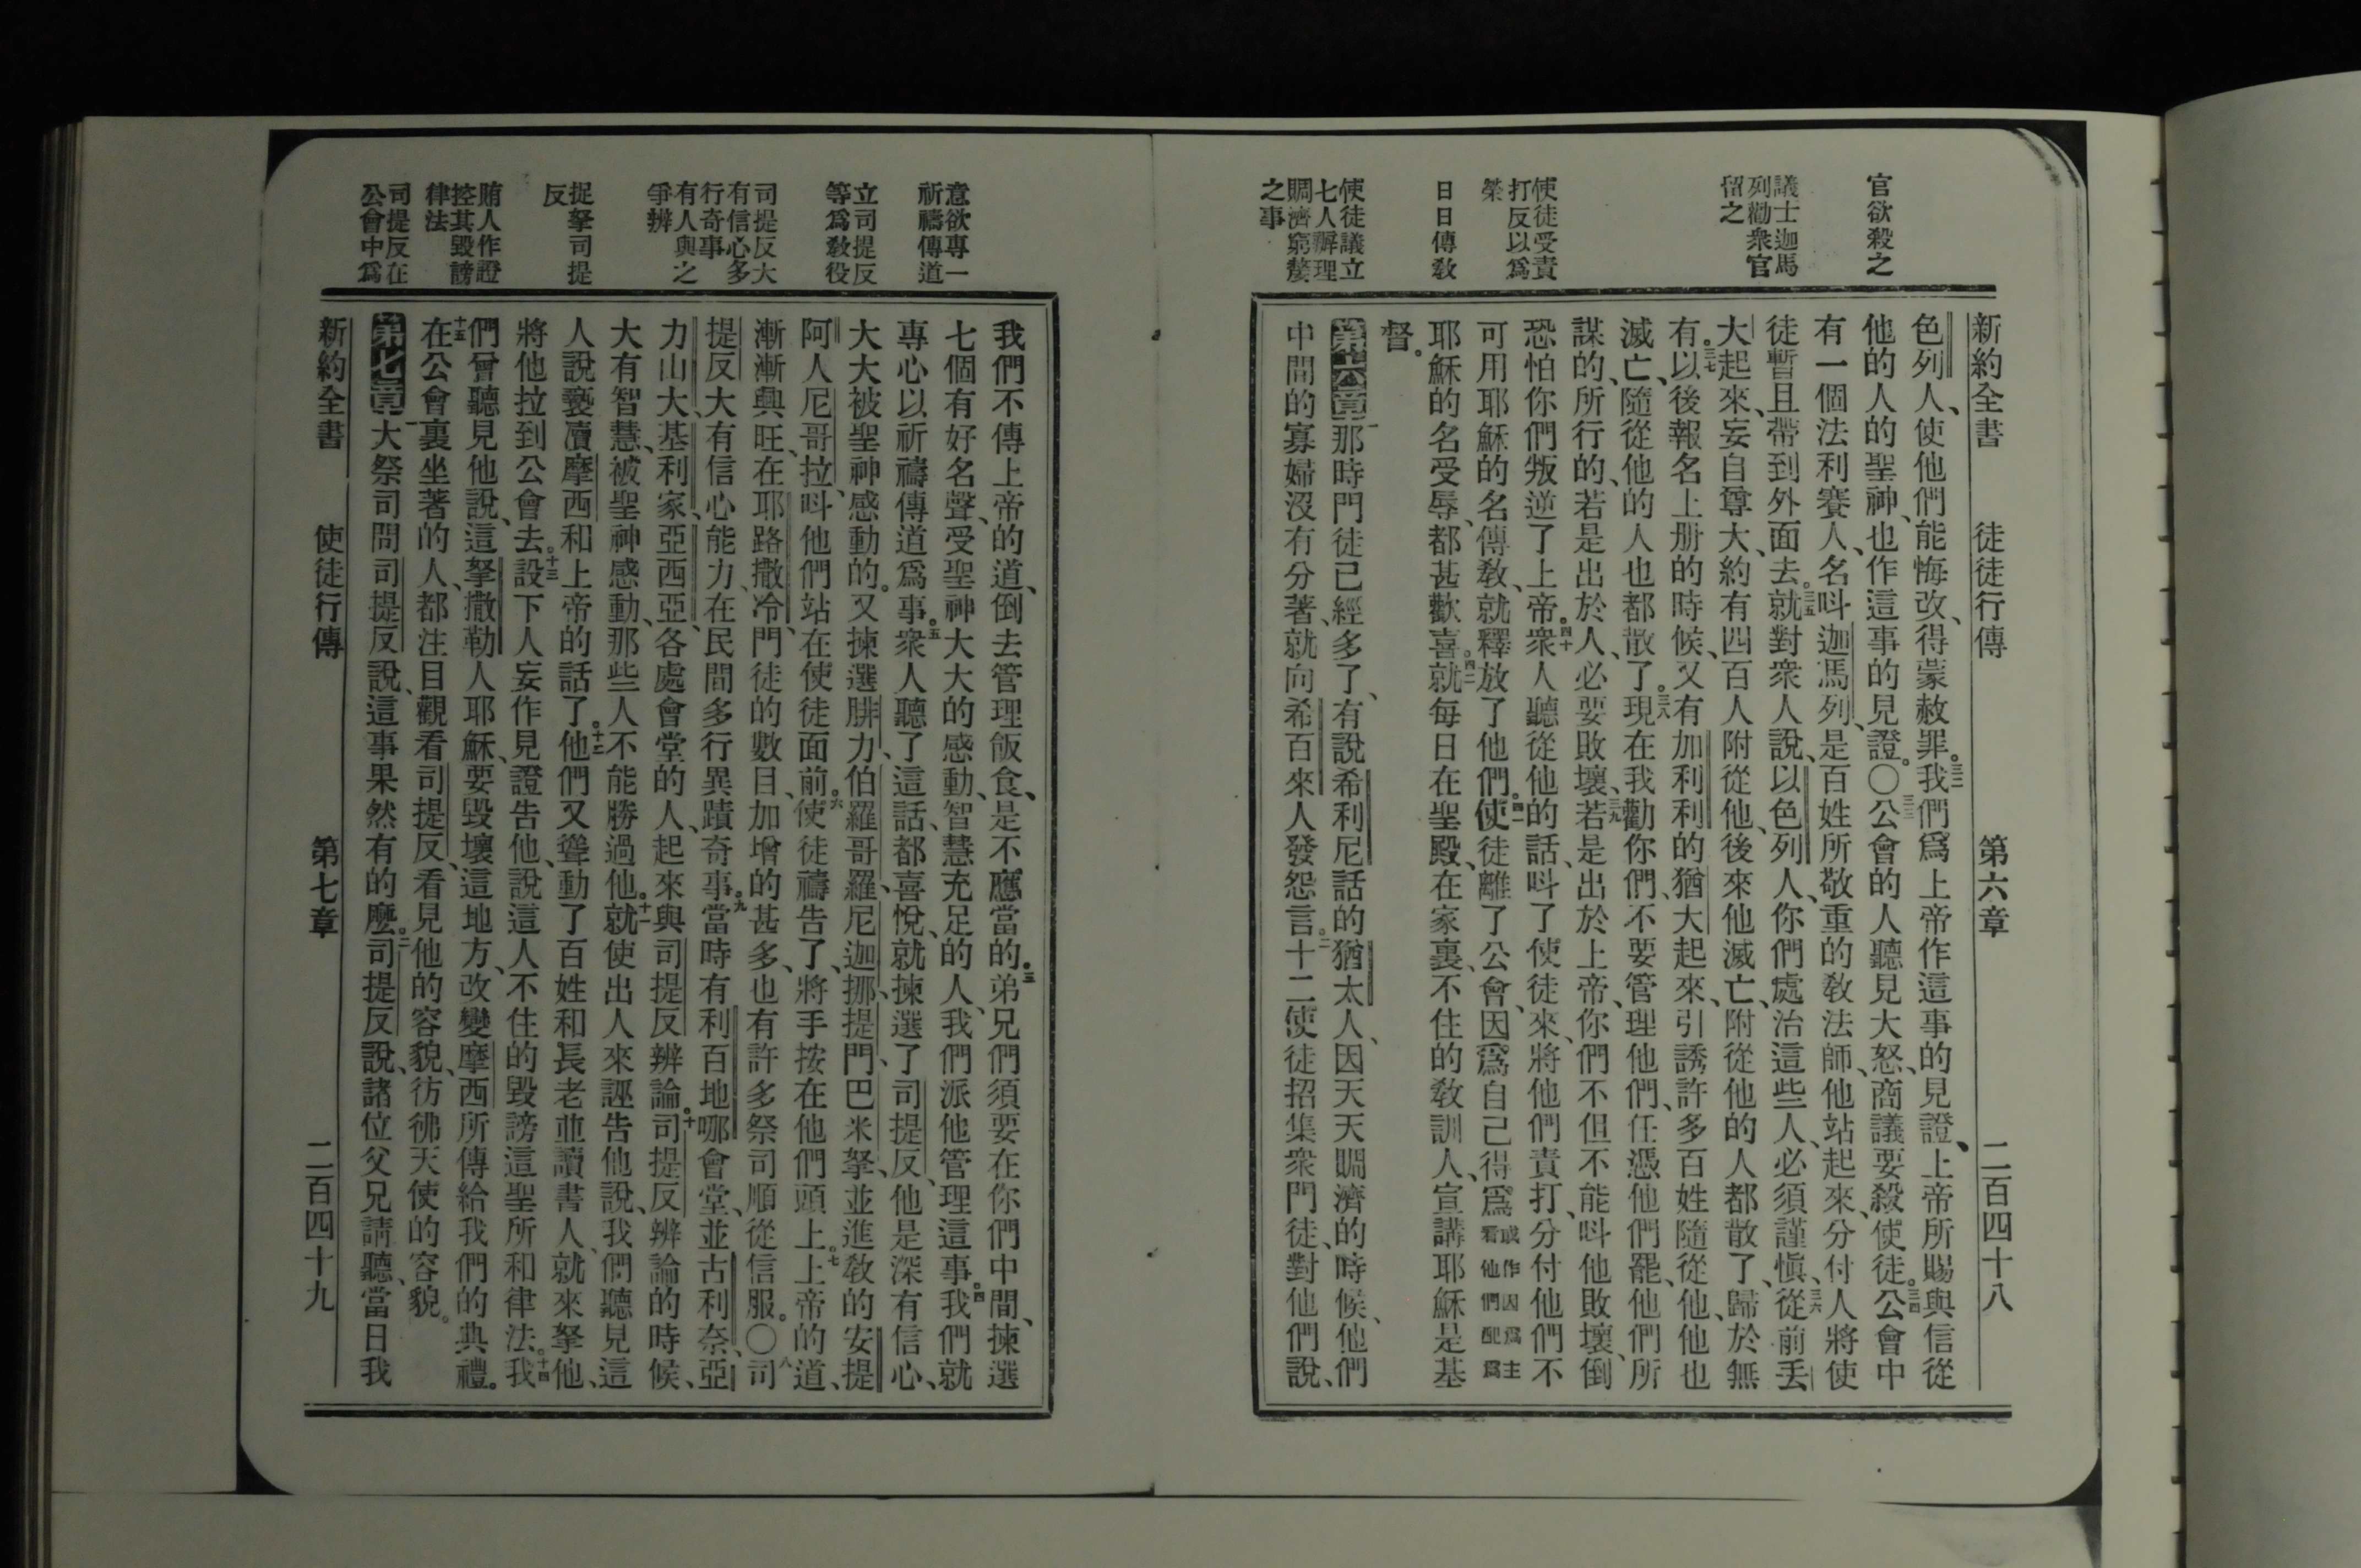 官欲殺之
議士迦馬
列勸衆官
留之
使徒受責
打反以爲
榮
日日傳教
使徒議立
七人辦理
賙濟窮嫠
之事
新約全書 徒徒行傳 第六章 二百四十八
色列人、使他們能悔改、得蒙赦罪。三二我們爲上帝作這事的見證、上帝所賜與信從
他的人的聖神、也作這事的見證。〇三三公會的人聽見大怒、商議要殺使徒。三四公會中
有一個法利賽人、名呌迦馬列、是百姓所敬重的教法師、他站起來、分付人將使
徒暫且帶到外面去。三五就對衆人說、以色列人、你們處治這些人、必須謹愼、三六從前丢
大起來、妄自尊大、約有四百人附從他、後來他滅亡、附從他的人都散了、歸於無
有。三七以後報名上册的時候、又有加利利的猶大起來、引誘許多百姓隨從他、他也
滅亡、隨從他的人也都散了。三八現在我勸你們、不要管理他們、任憑他們罷、他們所
謀的、所行的、若是出於人、必要敗壞、三九若是出於上帝、你們不但不能呌他敗壞、倒
恐怕你們叛逆了上帝。四十衆人聽從他的話、呌了使徒來、將他們責打、分付他們不
可用耶穌的名傳教、就釋放了他們。四一使徒離了公會、因爲自己得爲或作因爲主看他們配爲
耶穌的名受辱、都甚歡喜。四二就每日在聖殿、在家裏、不住的教訓人、宣講耶穌是基
督。
第六章一那時門徒已經多了、有說希利尼話的猶太人、因天天賙濟的時候、他們
中間的寡婦沒有分著、就向希百來人發怨言。二十二使徒招集衆門徒、對他們說、
意欲專一
祈禱傳道
立司提反
等爲教役
司提反大
有信心多
行奇事
有人與之
爭辨
捉拏司提
反
賄人作證
控其毀謗
律法
司提反在
公會中爲
我們不傳上帝的道、倒去管理飯食、是不應當的。三弟兄們須要在你們中間、揀選
七個有好名聲、受聖神大大的感動、智慧充足的人、我們派他管理這事。四我們就
專心以祈禱傳道爲事。五衆人聽了這話、都喜悅、就揀選了司提反、他是深有信心、
大大被聖神感動的。又揀選腓力、伯羅哥羅、尼迦挪、提門、巴米拏、並進教的安提
阿人尼哥拉、呌他們站在使徒面前、六使徒禱告了、將手按在他們頭上。七上帝的道、
漸漸興旺、在耶路撒冷、門徒的數目、加增的甚多、也有許多祭司順從信服。〇八司
提反大有信心能力、在民間多行異蹟奇事。九當時有利百地哪會堂、並古利奈、亞
力山大、基利家、亞西亞、各處會堂的人、起來與司提反辨論。十司提反辨論的時候、
大有智慧、被聖神感動、那些人不能勝過他。十一就使出人來誣告他說、我們聽見這
人說褻瀆摩西和上帝的話了。十二他們又聳動了百姓和長老並讀書人、就來拏他、
將他拉到公會去。十三設下人妄作見證告他、說這人不住的毀謗這聖所和律法。十四我
們曾聽見他說、這拏撒勒人耶穌、要毀壞這地方、改變摩西所傳給我們的典禮。
十五在公會裏坐著的人、都注目觀看司提反、看見他的容貌、彷彿天使的容貌。
第七章一大祭司問司提反說、這事果然有的麽。二司提反說、諸位父兄請聽、當日我
新約全書 使徒行傳 第七章 二百四十九